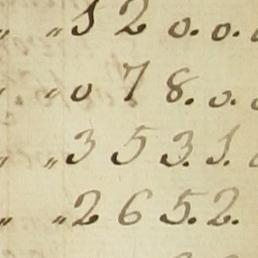 „ „ 1 2 0. 0. 0
„ „ 0 7 8. 0. 0
„ „ 3 5 3. 1. 0
„ „ 2 6 5. 2.